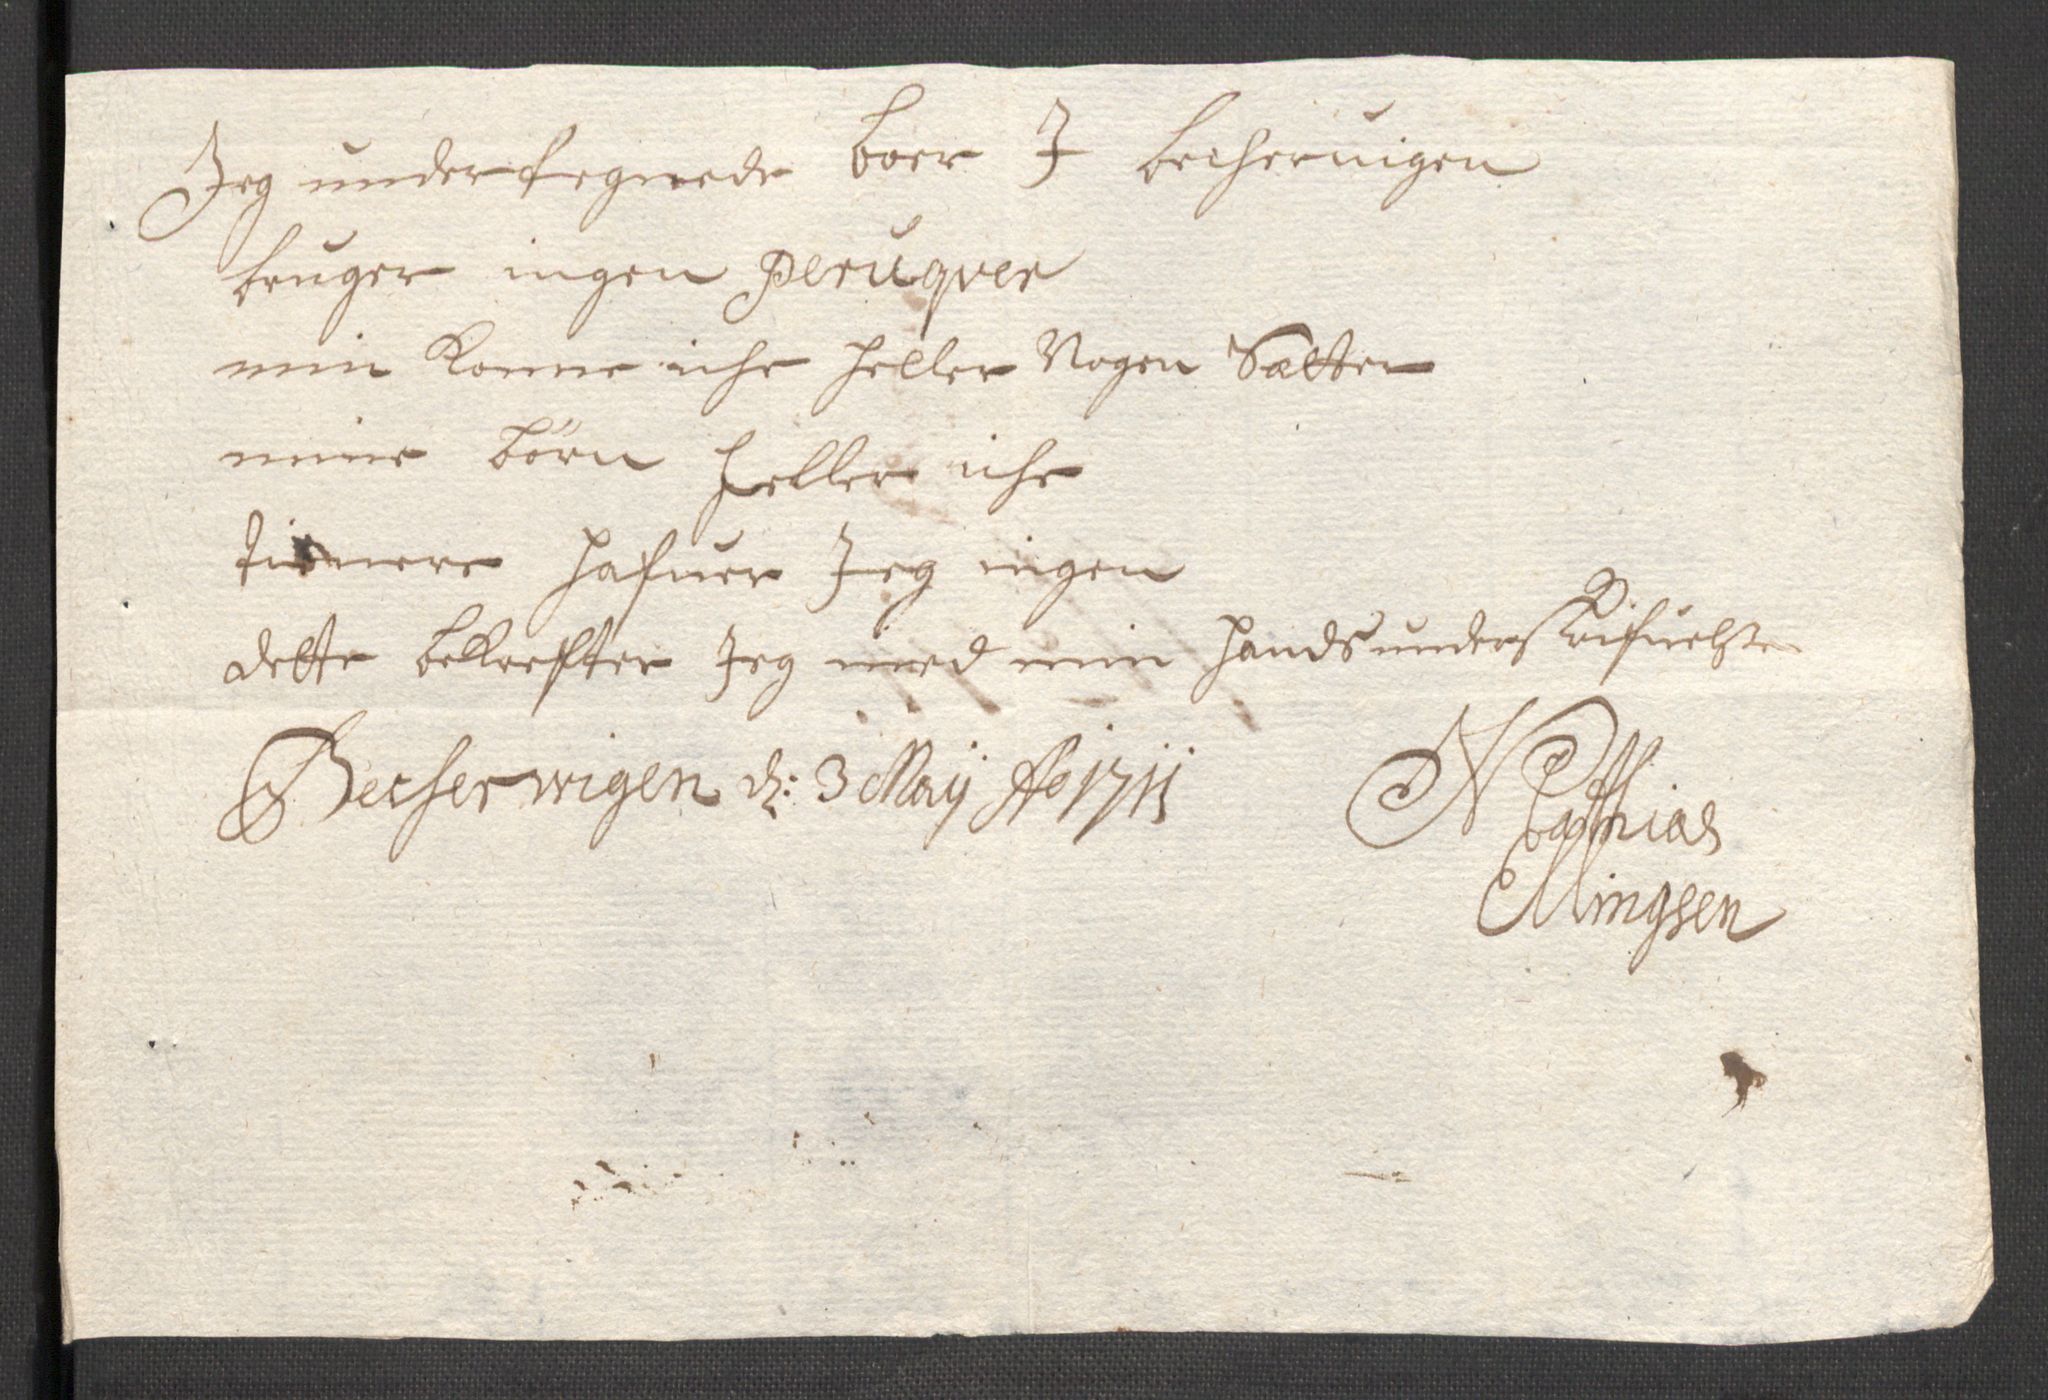 Jeg undertegnede boer J becheruigen
bruger ingen peruqver
min Konne iche heller Nogen Sætter
mine börn heller iche
tienere hafuer Jeg ingen
dette bekrefter Jeg med min hands underskrifuelse
Becherwigen d: 3 Maij Ao 1711
Matthias
Mingsen